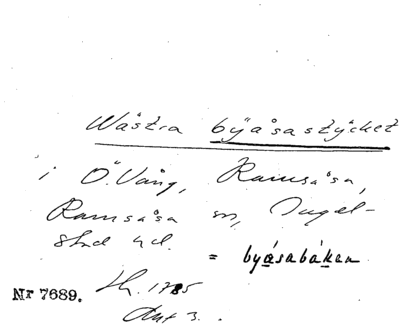 Wästra byåsastÿcket
i Ö. Vång, Ramsåsa,
Ramsåsa sn, Ingel-
stad hd.
= byåsabáken
Nr 7689.
1785
Akt 3.